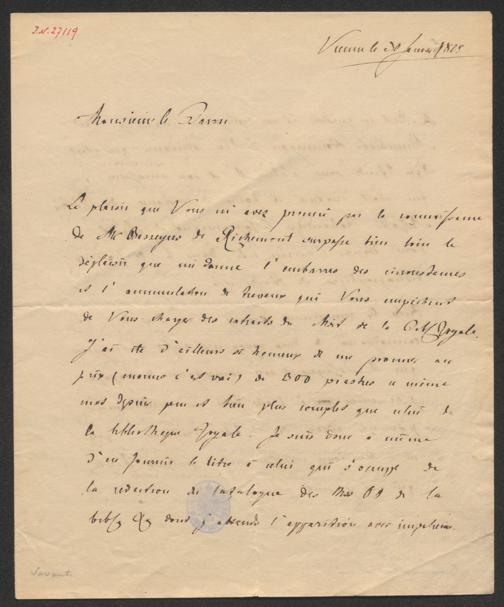 J.N. 27119
Vienne le
Monsieur le Baron
Le plaisir que Vous m'avez procuré par la connaissance
de Mr de Richemont surpasse bien loin le
déplaisir que me donne l'embarras des circonstances
et l'accumulation de travaux qui Vous empêchent
de Vous charger des extraits du Mst de la Royale.
J'ai été d'ailleurs si heureux de me procurer au
prix (énorme c'est vrai) de 500 piastres le même
depuis peu et bien plus complet que celui de
la bibliothèque Royale. Je suis donc à même
d'en fournir le titre à celui qui s'occupe de
la rédaction du catalogue des Mss Or de la
dont j'attends l'apparition avec impatience.